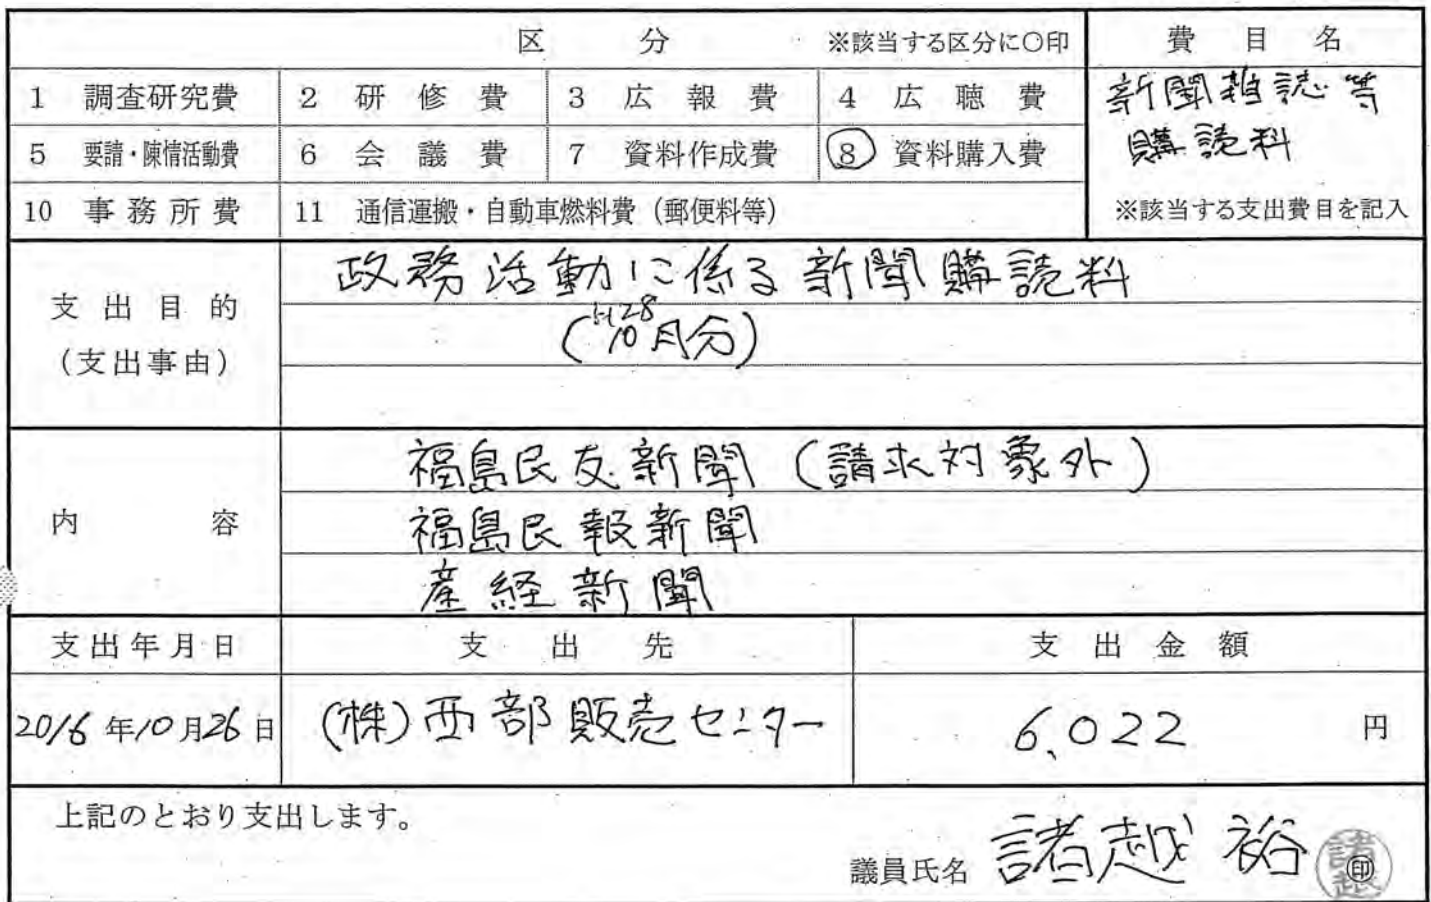 区 分 ※該当する区分に○印 費 目 名
1 調査研究費 2 研 修 費 3 広 報 費 4 広 聴 費 新聞雑誌等
5 要請・陳情活動費 6 会 議 費 7 資料作成費 8 資料購入費 購読料
10 事務所費 11 通信運搬・自動車燃料費（郵便料等） ※該当する支出費目を記入
支 出 目 的 政務活動に係る新聞購読料
(支出事由) (H28 10月分)
福島民友新聞（請求対象外）
内 容 福島民報新聞
産経新聞
支出年月日 支 出 先 支 出 金 額
2016年10月26日 (株)西部販売センター 6,022 円
上記のとおり支出します。
議員氏名 諸越 裕 印
諸越